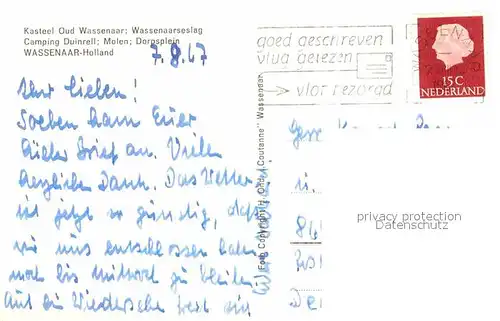 Kasteel Oud Wassenaar; Wassenaarseslag
Camping Duinrell; Molen; Dorpsplein
WASSENAAR-Holland
7.8.67
Ihr Lieben!
Soeben kam Euer
lieber Brief an. Vielen
herzlichen Dank. Das Wetter
ist jetzt so günstig, daß
wir uns entschlossen haben
noch bis Mittwoch zu bleiben.
Auf ein Wiedersehen
Foto Copyright H. Ond. „Coutanne” Wassenaar
goed geschreven
vlug gelezen
vlot bezorgd
15 C
NEDERLAND
privacy protection
Datenschutz